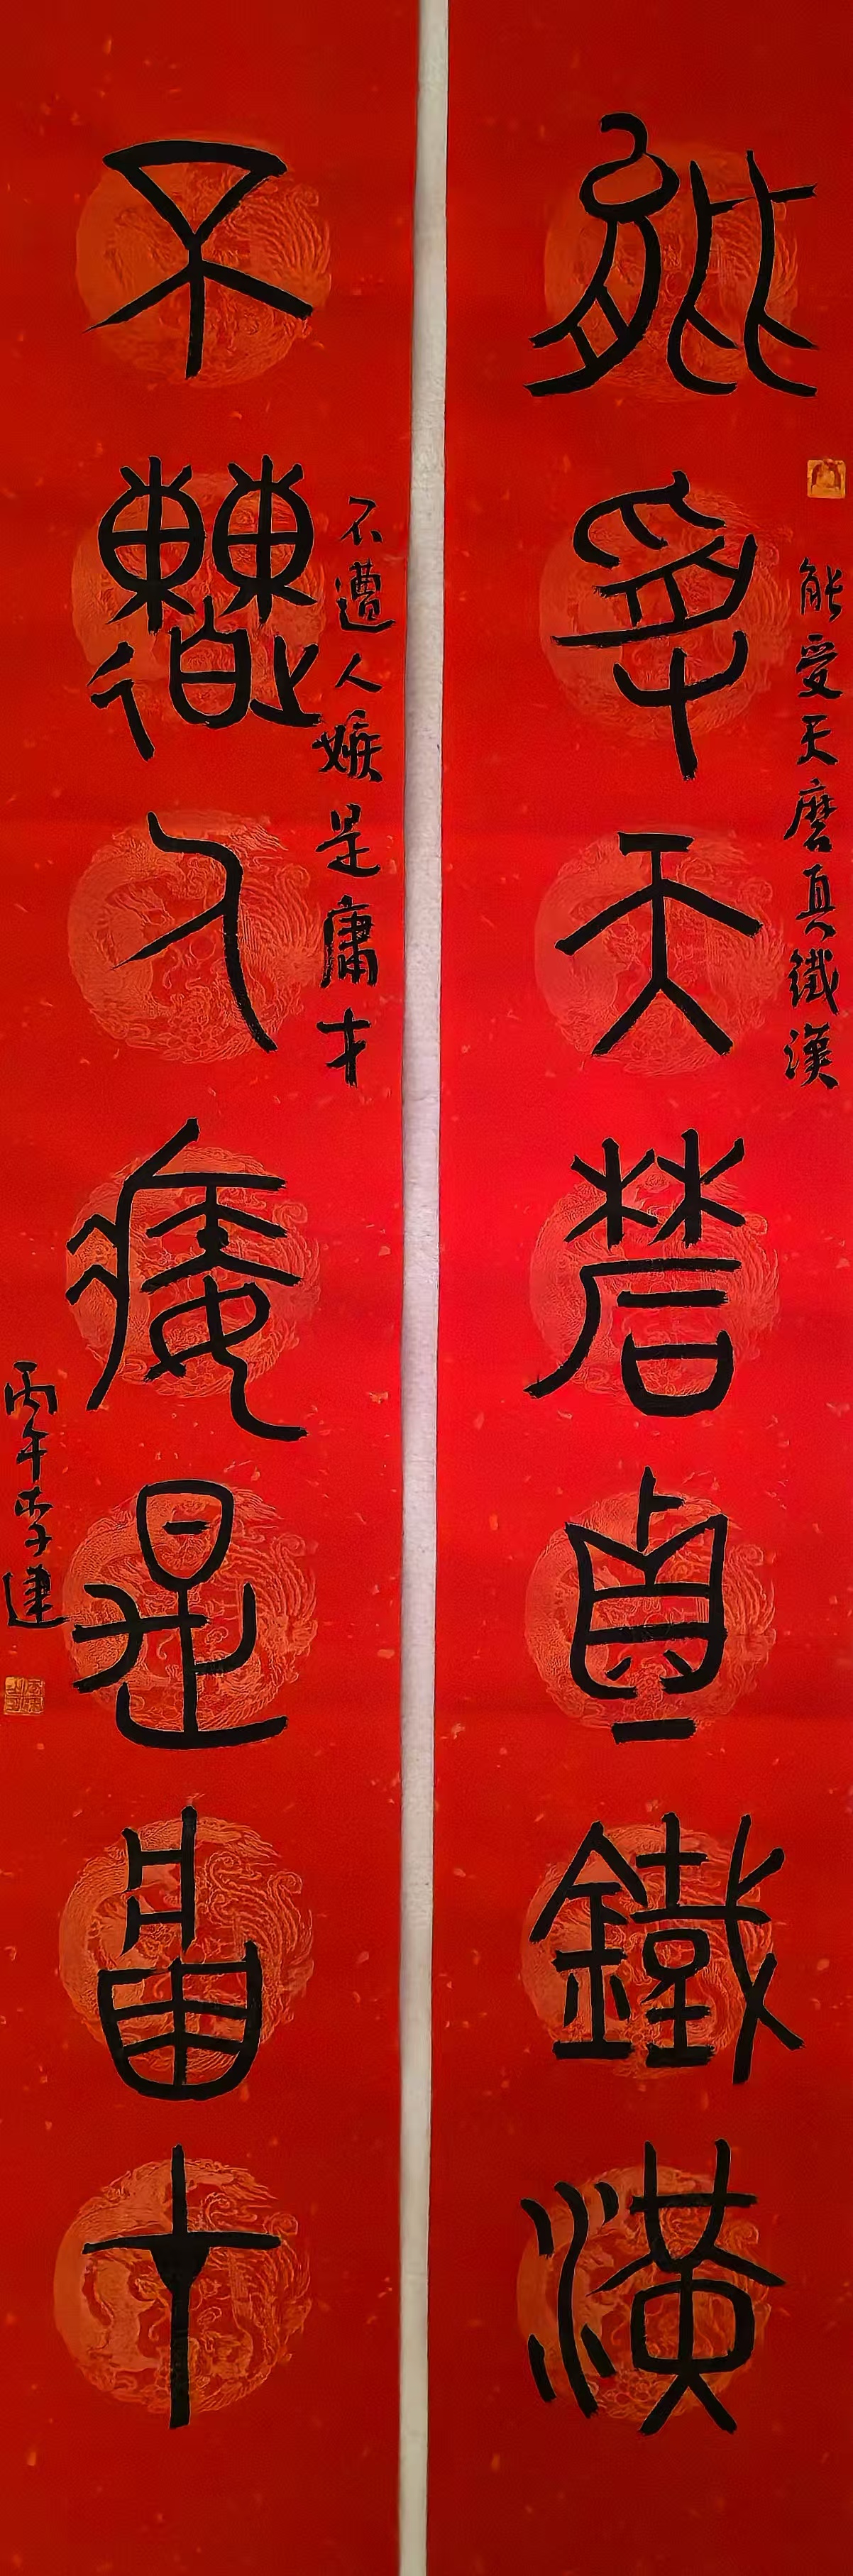 能受天磨真鐵漢
能受天磨真鐵漢
不遭人嫉是庸才
不遭人嫉是庸才
丙午李建